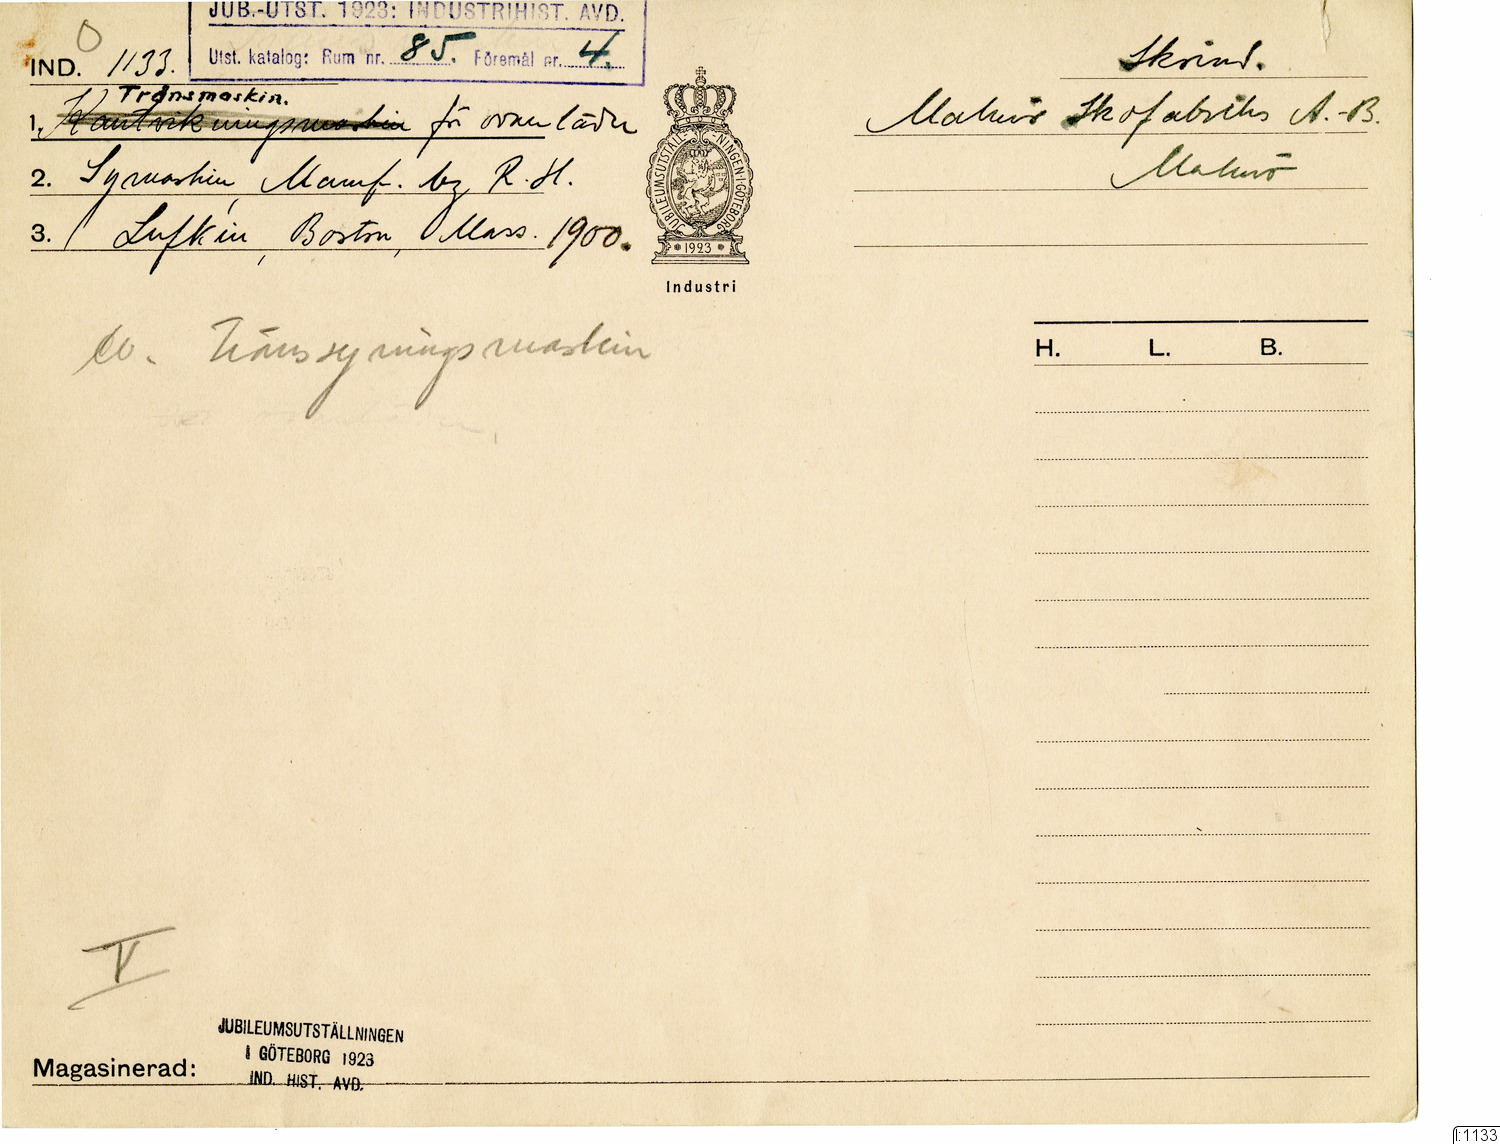 JUB.-UTST. 1923: INDUSTRIHIST. AVD.
Utst. katalog: Rum nr. 85. Föremål nr. 4.
IND. 1133.
Transmaskin.
1. Kantvikningsmaskin för ovanläder
2. Symaskin, Manuf. by R. H.
3. Lufkin, Boston, Mass. 1900.
JUBILEUMSUTSTÄLLNINGEN I GÖTEBORG
1923
Industri
Skoind.
Malmö Skofabriks A.-B.
Malmö
Tränssyningsmaskin
H. L. B.
V
JUBILEUMSUTSTÄLLNINGEN
I GÖTEBORG 1923
IND. HIST. AVD.
Magasinerad:
I:1133